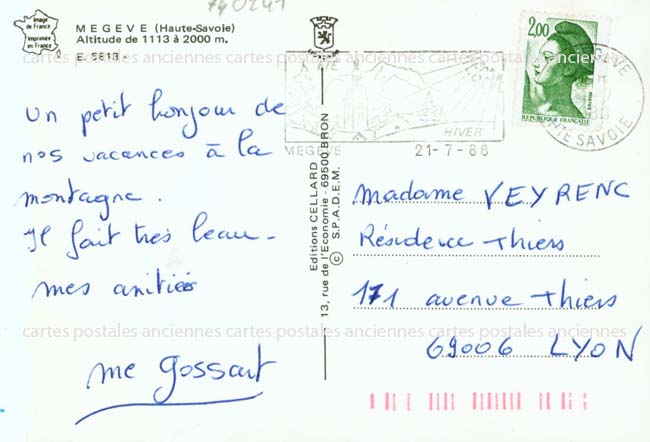 740241
Image
de France
Imprimée
en France
MEGEVE (Haute-Savoie)
Altitude de 1113 à 2000 m.
E. 5813 -
cartes postales anciennes cartes postales anciennes cartes postales anciennes
ÉTÉ
HIVER
MEGEVE
21-7-88
2,00
REPUBLIQUE FRANÇAISE
POSTES
HTE SAVOIE
Un petit bonjour de
nos vacances à la
montagne.
Il fait très beau -
mes amitiés
me Gossart
Editions CELLARD
13, rue de l'Economie - 69500 BRON
© S.P.A.D.E.M.
Madame VEYRENC
Résidence Thiers
171 avenue Thiers
69006 LYON
cartes postales anciennes cartes postales anciennes cartes postales anciennes